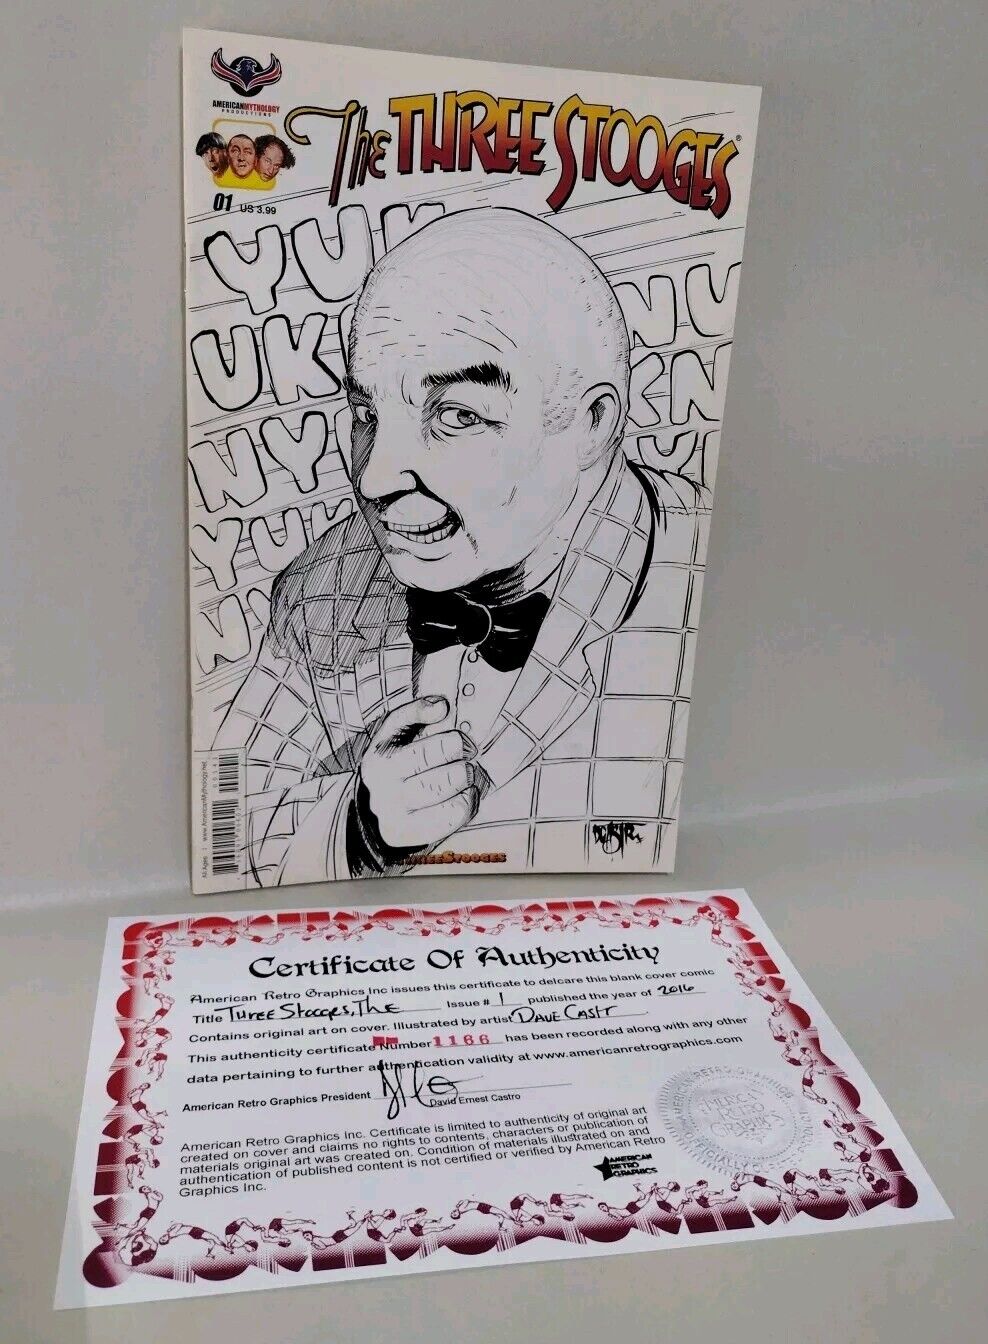 AMERICANMYTHOLOGY
PRODUCTIONS
The THREE STOOGES®
01 US 3.99
YUK
UK
NY
YUK
NY
NU
KN
YU
All Ages
www.AmericanMythology.net
THREE STOOGES
Certificate Of Authenticity
American Retro Graphics Inc issues this certificate to delcare this blank cover comic
Title Three Stooges, The Issue # 1 published the year of 2016
Contains original art on cover. Illustrated by artist Dave Castr
This authenticity certificate Number 1166 has been recorded along with any other
data pertaining to further authentication validity at www.americanretrographics.com
American Retro Graphics President
David Ernest Castro
American Retro Graphics Inc. Certificate is limited to authenticity of original art
created on cover and claims no rights to contents, characters or publication of
materials original art was created on. Condition of materials illustrated on and
authentication of published content is not certified or verified by American Retro
Graphics Inc.
AMERICAN
RETRO
GRAPHICS
AMERICAN
RETRO
GRAPHICS